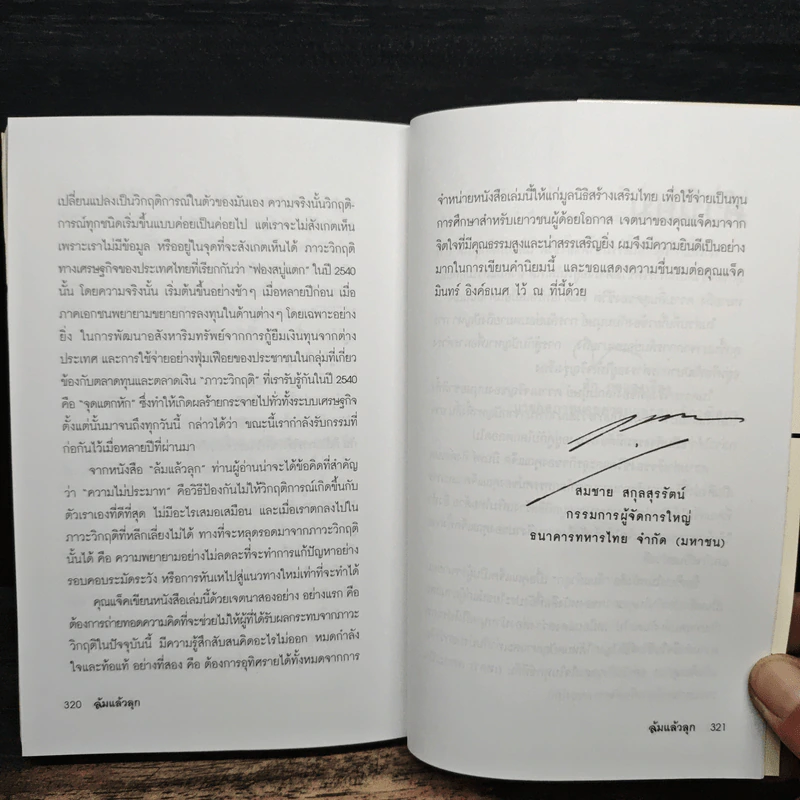 เปลี่ยนแปลงเป็นวิกฤติการณ์ในตัวของมันเอง ความจริงนั้นวิกฤติ-
การณ์ทุกชนิดเริ่มขึ้นแบบค่อยเป็นค่อยไป แต่เราจะไม่สังเกตเห็น
เพราะเราไม่มีข้อมูล หรืออยู่ในจุดที่จะสังเกตเห็นได้ ภาวะวิกฤติ
ทางเศรษฐกิจของประเทศไทยที่เรียกกันว่า “ฟองสบู่แตก” ในปี 2540
นั้น โดยความจริงนั้น เริ่มต้นขึ้นอย่างช้าๆ เมื่อหลายปีก่อน เมื่อ
ภาคเอกชนพยายามขยายการลงทุนในด้านต่างๆ โดยเฉพาะอย่าง
ยิ่ง ในการพัฒนาอสังหาริมทรัพย์จากการกู้ยืมเงินทุนจากต่าง
ประเทศ และการใช้จ่ายอย่างฟุ่มเฟือยของประชาชนในกลุ่มที่เกี่ยว
ข้องกับตลาดทุนและตลาดเงิน “ภาวะวิกฤติ” ที่เรารับรู้กันในปี 2540
คือ “จุดแตกหัก” ซึ่งทำให้เกิดผลร้ายกระจายไปทั่วทั้งระบบเศรษฐกิจ
ตั้งแต่นั้นมาจนถึงทุกวันนี้ กล่าวได้ว่า ขณะนี้เรากำลังรับกรรมที่
ก่อกันไว้เมื่อหลายปีที่ผ่านมา
จากหนังสือ “ล้มแล้วลุก” ท่านผู้อ่านน่าจะได้ข้อคิดที่สำคัญ
ว่า “ความไม่ประมาท” คือวิธีป้องกันไม่ให้วิกฤติการณ์เกิดขึ้นกับ
ตัวเราเองที่ดีที่สุด ไม่มีอะไรเสมอเหมือน และเมื่อเราตกลงไปใน
ภาวะวิกฤติที่หลีกเลี่ยงไม่ได้ ทางที่จะหลุดรอดมาจากภาวะวิกฤติ
นั้นได้ คือ ความพยายามอย่างไม่ลดละที่จะทำการแก้ปัญหาอย่าง
รอบคอบระมัดระวัง หรือการหันเหไปสู่แนวทางใหม่เท่าที่จะทำได้
คุณแจ็คเขียนหนังสือเล่มนี้ด้วยเจตนาสองอย่าง อย่างแรก คือ
ต้องการถ่ายทอดความคิดที่จะช่วยไม่ให้ผู้ที่ได้รับผลกระทบจากภาวะ
วิกฤติในปัจจุบันนี้ มีความรู้สึกสับสนคิดอะไรไม่ออก หมดกำลัง
ใจและท้อแท้ อย่างที่สอง คือ ต้องการอุทิศรายได้ทั้งหมดจากการ
320 ล้มแล้วลุก
จำหน่ายหนังสือเล่มนี้ให้แก่มูลนิธิสร้างเสริมไทย เพื่อใช้จ่ายเป็นทุน
การศึกษาสำหรับเยาวชนผู้ด้อยโอกาส เจตนาของคุณแจ็คมาจาก
จิตใจที่มีคุณธรรมสูงและน่าสรรเสริญยิ่ง ผมจึงมีความยินดีเป็นอย่าง
มากในการเขียนคำนิยมนี้ และขอแสดงความชื่นชมต่อคุณแจ็ค
มินทร์ อิงค์ธเนศ ไว้ ณ ที่นี้ด้วย
สมชาย สกุลสุรรัตน์
กรรมการผู้จัดการใหญ่
ธนาคารทหารไทย จำกัด (มหาชน)
ล้มแล้วลุก 321